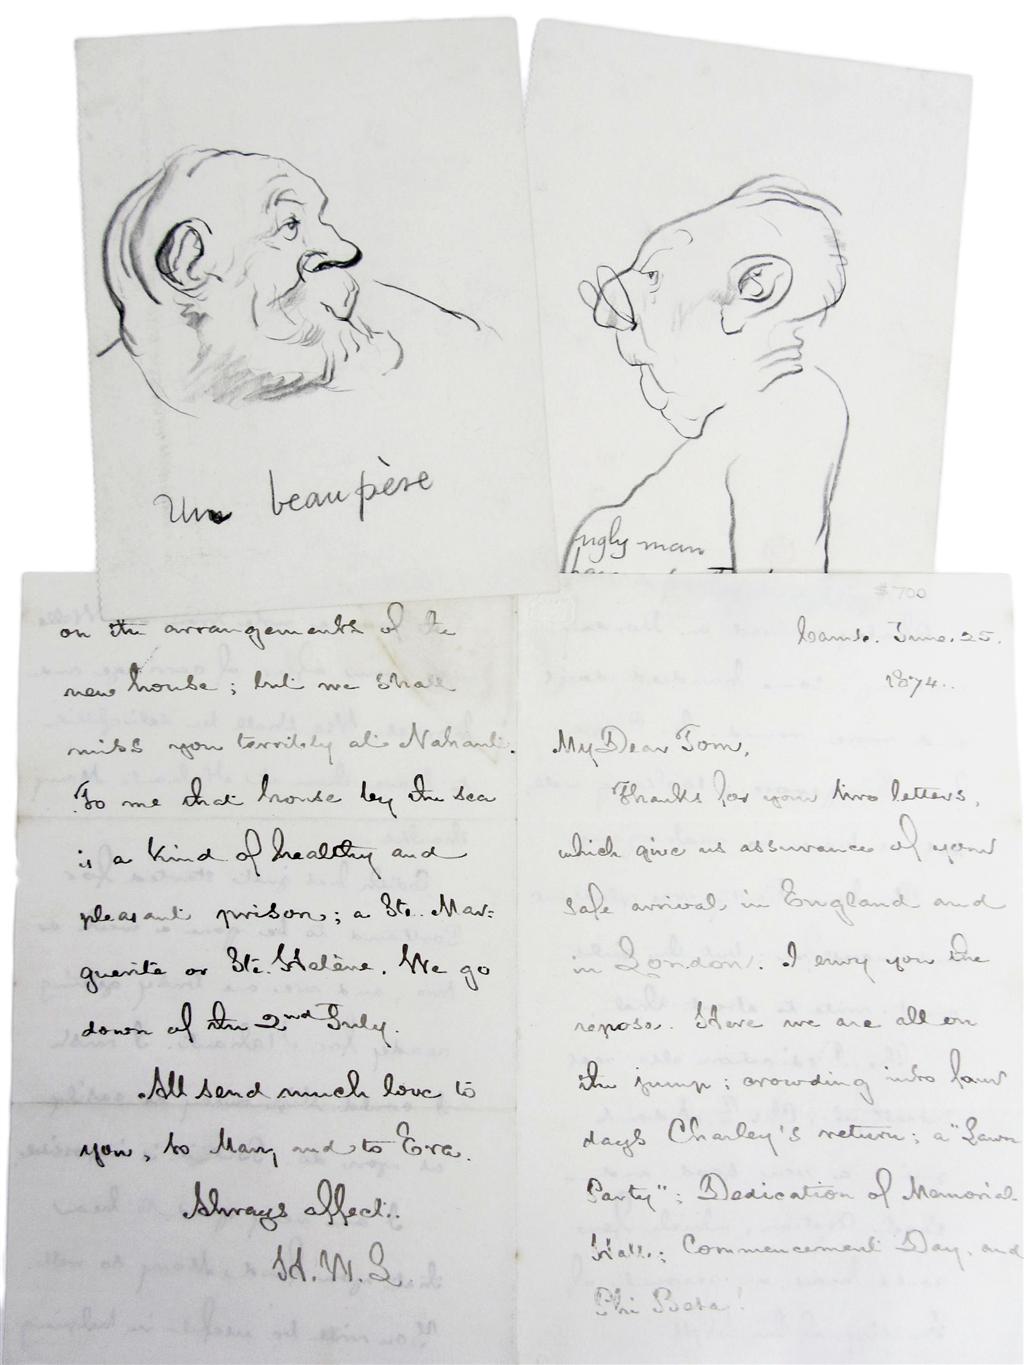 Un beau père
ugly man
$700
on the arrangements of the
new house; but we shall
miss you terribly at Nahant.
To me that house by the sea
is a kind of healthy and
pleasant prison; a Ste. Mar=
guerite or Ste. Hélène. We go
down of the 2nd July.
All send much love to
you, to Mary and to Eva.
Always affect..
H. W. L
Camb. June. 25.
1874.
My Dear Tom,
Thanks for your two letters,
which give us assurance of your
safe arrival in England and
in London. I envy you the
repose. Here we are all on
the jump; crowding into four
days Charley's return; a "Lawn
Party"; Dedication of Memorial
Hall; Commencement Day, and
Phi Beta!